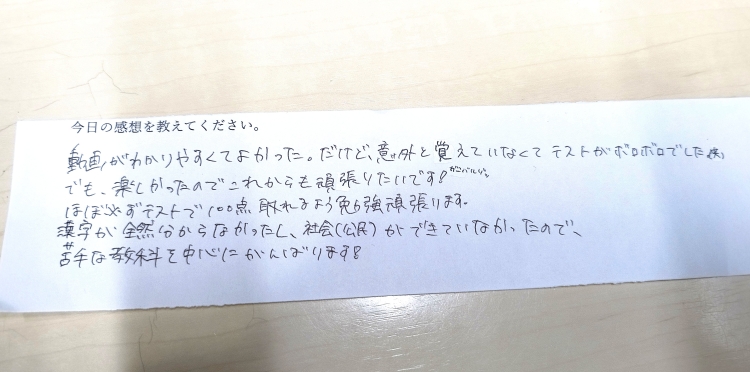 今日の感想を教えてください。
動画がわかりやすくてよかった。だけど、意外と覚えていなくてテストがボロボロでした(笑)
でも、楽しかったのでこれからも頑張りたいです!ガンバルゾ〜
ほぼ必ずテストで100点取れるよう勉強頑張ります。
漢字が全然分からなかったし、社会(公民)ができていなかったので、
苦手な教科を中心にがんばります!